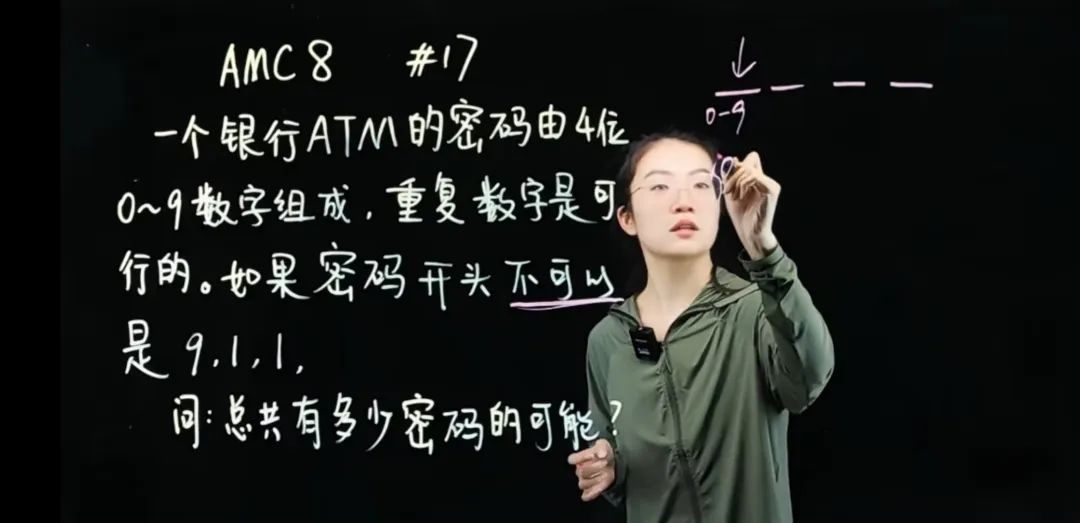 AMC 8 #17
一个银行ATM的密码由4位
0~9数字组成,重复数字是可
行的。如果密码开头不可以
是 9,1,1,
问:总共有多少密码的可能?
0-9